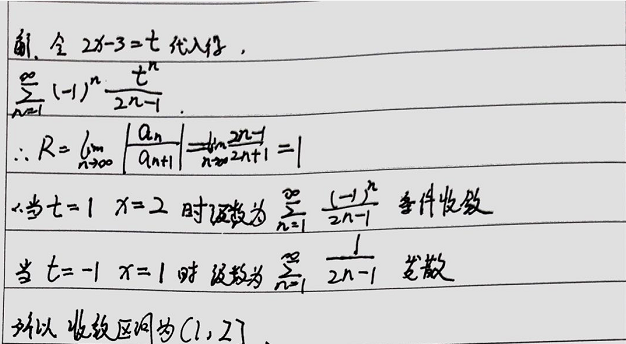 解. 令 2x-3=t 代入得,
\sum_{n=1}^{\infty} (-1)^n \frac{t^n}{2n-1}.
∴ R = \lim_{n→∞} \left|\frac{a_n}{a_{n+1}}\right| = \lim_{n→∞} \frac{2n-1}{2n+1} = 1
∴当 t=1 x=2 时 级数为 \sum_{n=1}^{\infty} \frac{(-1)^n}{2n-1} 条件收敛
当 t=-1 x=1 时 级数为 \sum_{n=1}^{\infty} \frac{1}{2n-1} 发散
所以 收敛区间为 (1,2].